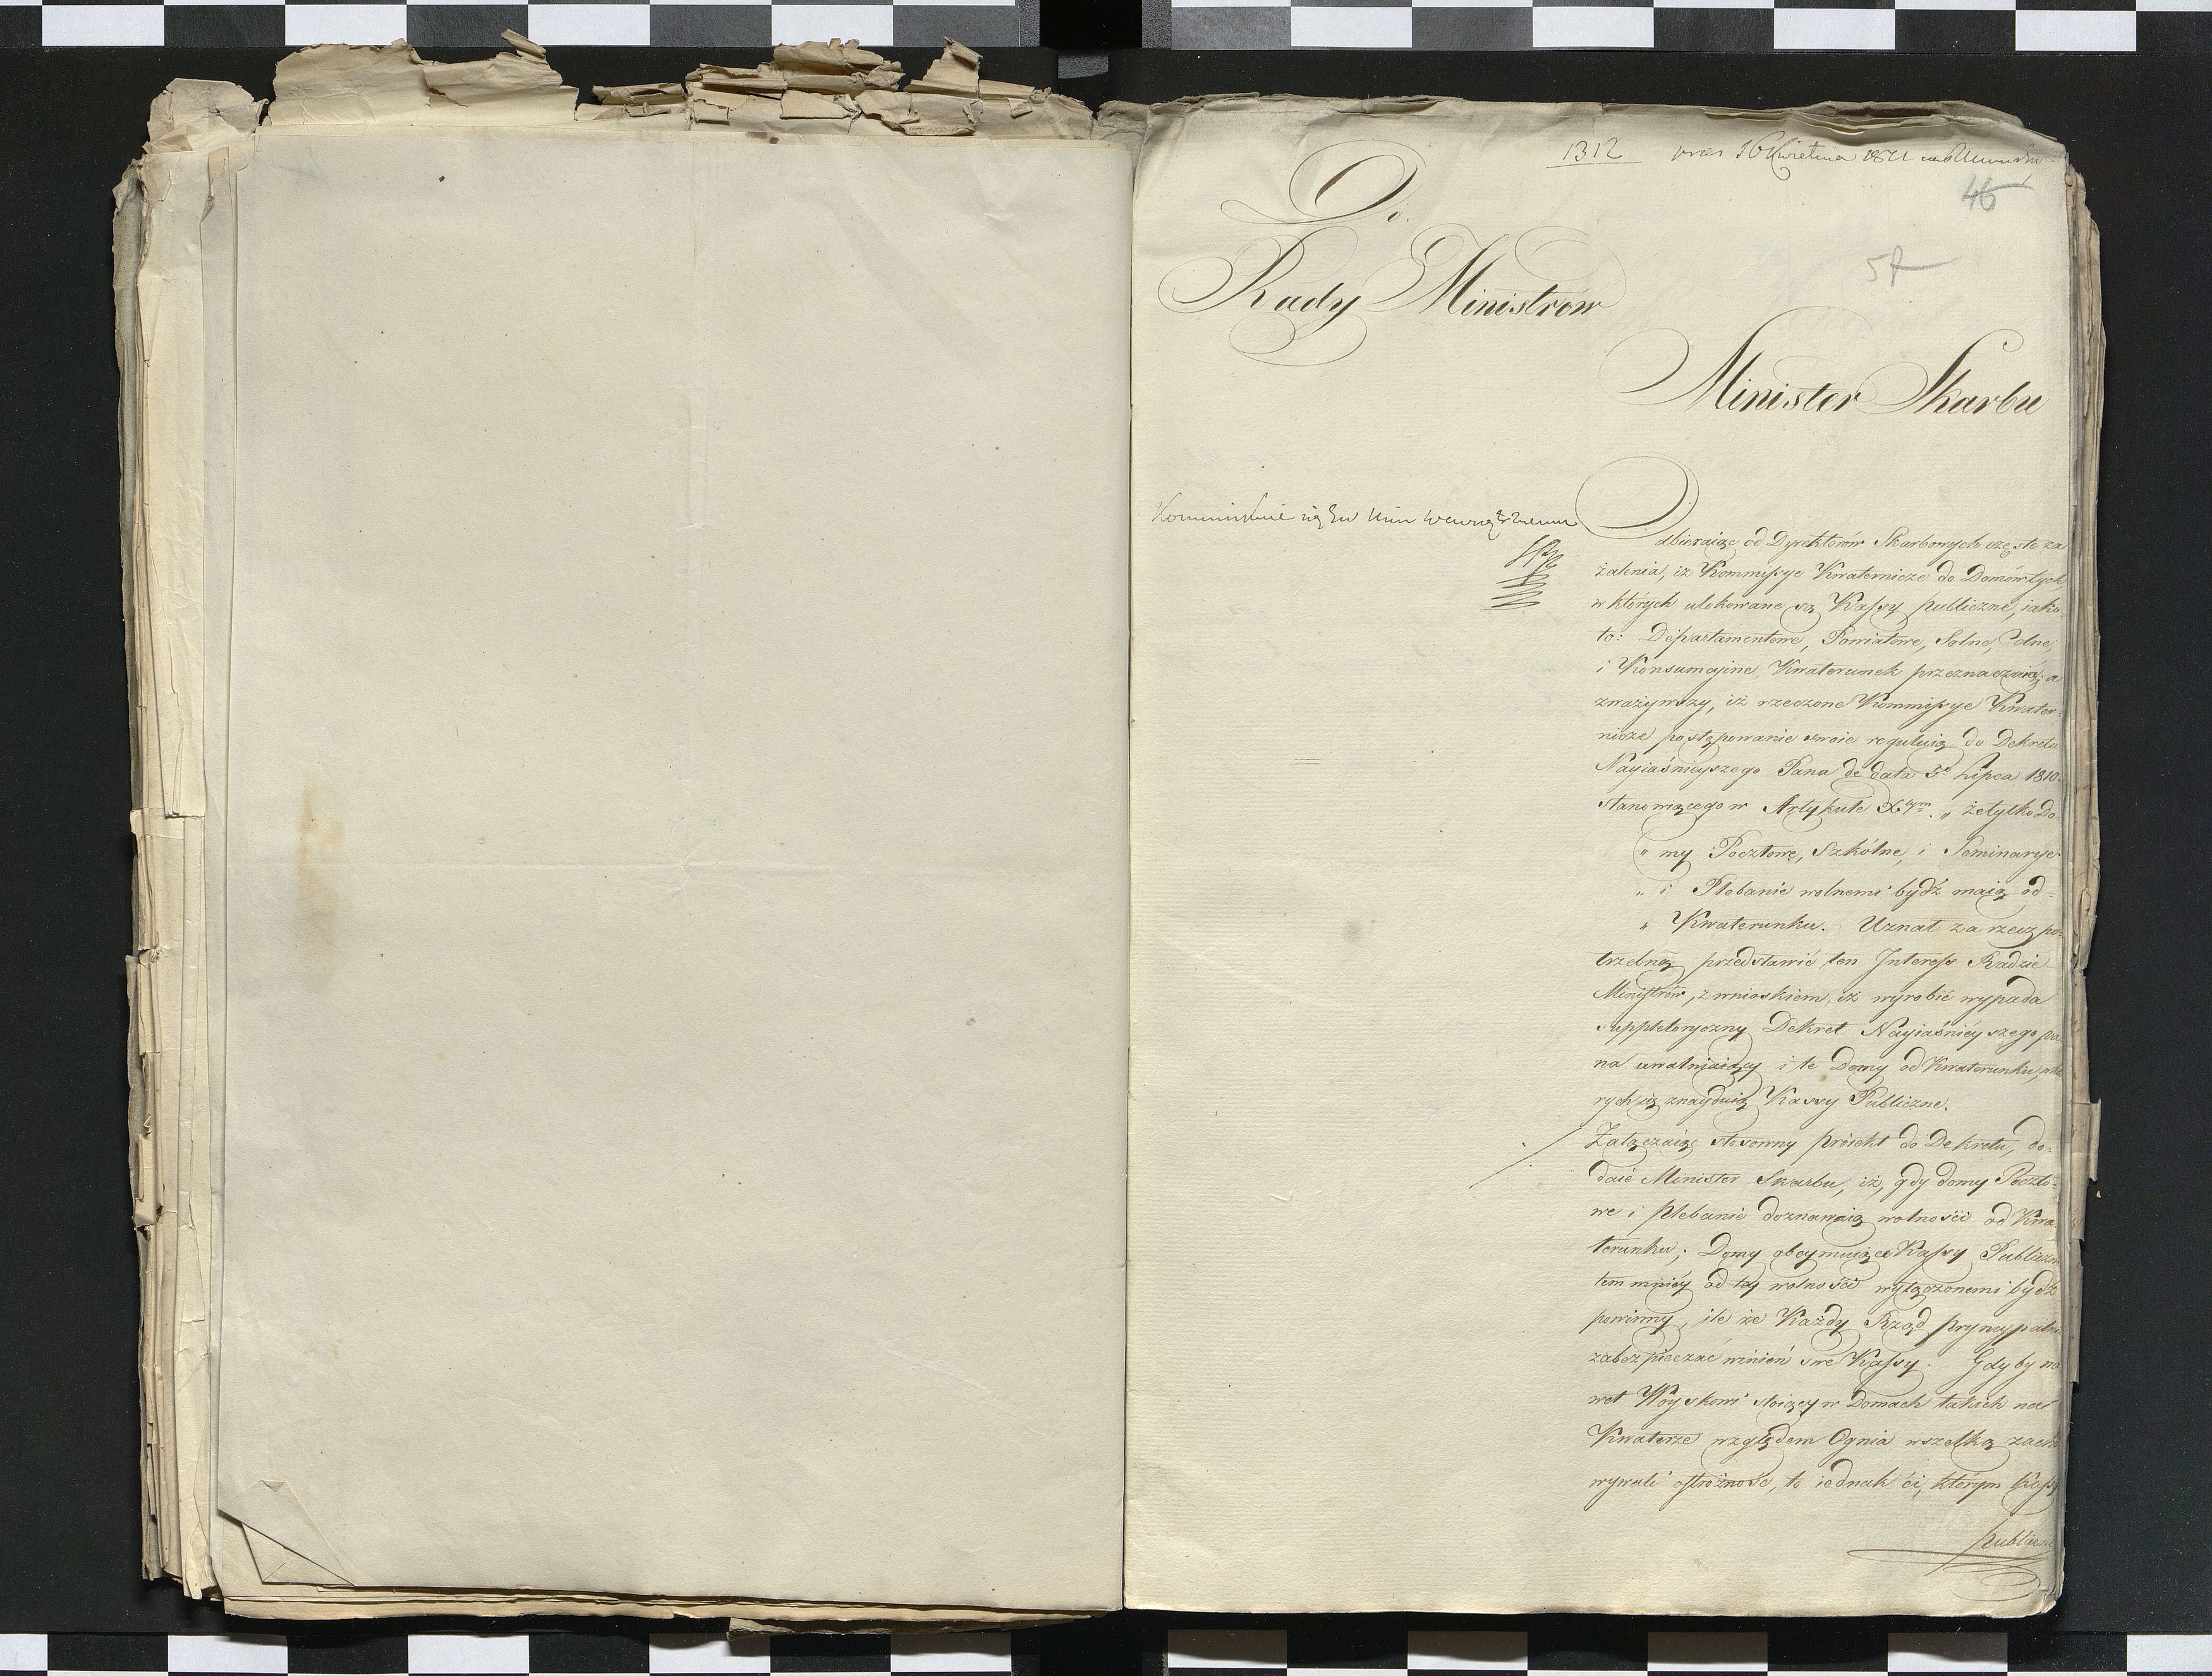 1312 16 Kwietnia 1811
46
57
Do
Rady Ministrow
Minister Skarbu
się
Odbieraiąc od Dyrektorów Skarbowych częste za
żalenia, iż Kommissye Kwaternicze do Domów tych,
w których ulokowane są Kassy publiczne, iako
to: Departamentowe, Powiatowe, Solne, Celne,
i Konsumcyine, Kwaterunek przeznaczaią; a
zważywszy, iż rzeczone Kommissye Kwater-
nicze postępowanie swoie reguluią do Dekretu
Nayiaśnieyszego Pana de data 5o Lipca 1810.
stanowiącego w Artykule Xtym. „ że tylko Do-
„ my Pocztowe, Szkólne, i Seminarye
„ i Plebanie wolnemi bydź maią od-
„ Kwaterunku. Uznał za rzecz po-
trzebną przedstawić ten Interess Radzie
Ministrów, z wnioskiem, iż wyrobić wypada
suppletoryczny Dekret Nayiaśnieyszego Pa-
na uwalniaiący i te Domy od Kwaterunku,
rych się znayduią Kassy Publiczne.
Załączaiąc stosowny proiekt do Dekretu, do-
daie Minister Skarbu, iż, gdy domy Poczto-
we i Plebanie doznawaią wolności od Kwa-
terunku; Domy obeymuiące Kassy Publiczne
tem mniey od tey wolności wyłączonemi bydź
powinny, ile że Każdy Rząd pryncypalnie
zabezpieczać winien swe Kassy. Gdyby na-
wet Woyskowi stoiący w Domach takich na
Kwaterze względem Ognia wszelką zacho
wywali ostrożność, to iednak ci, którym Kassy
publiczne